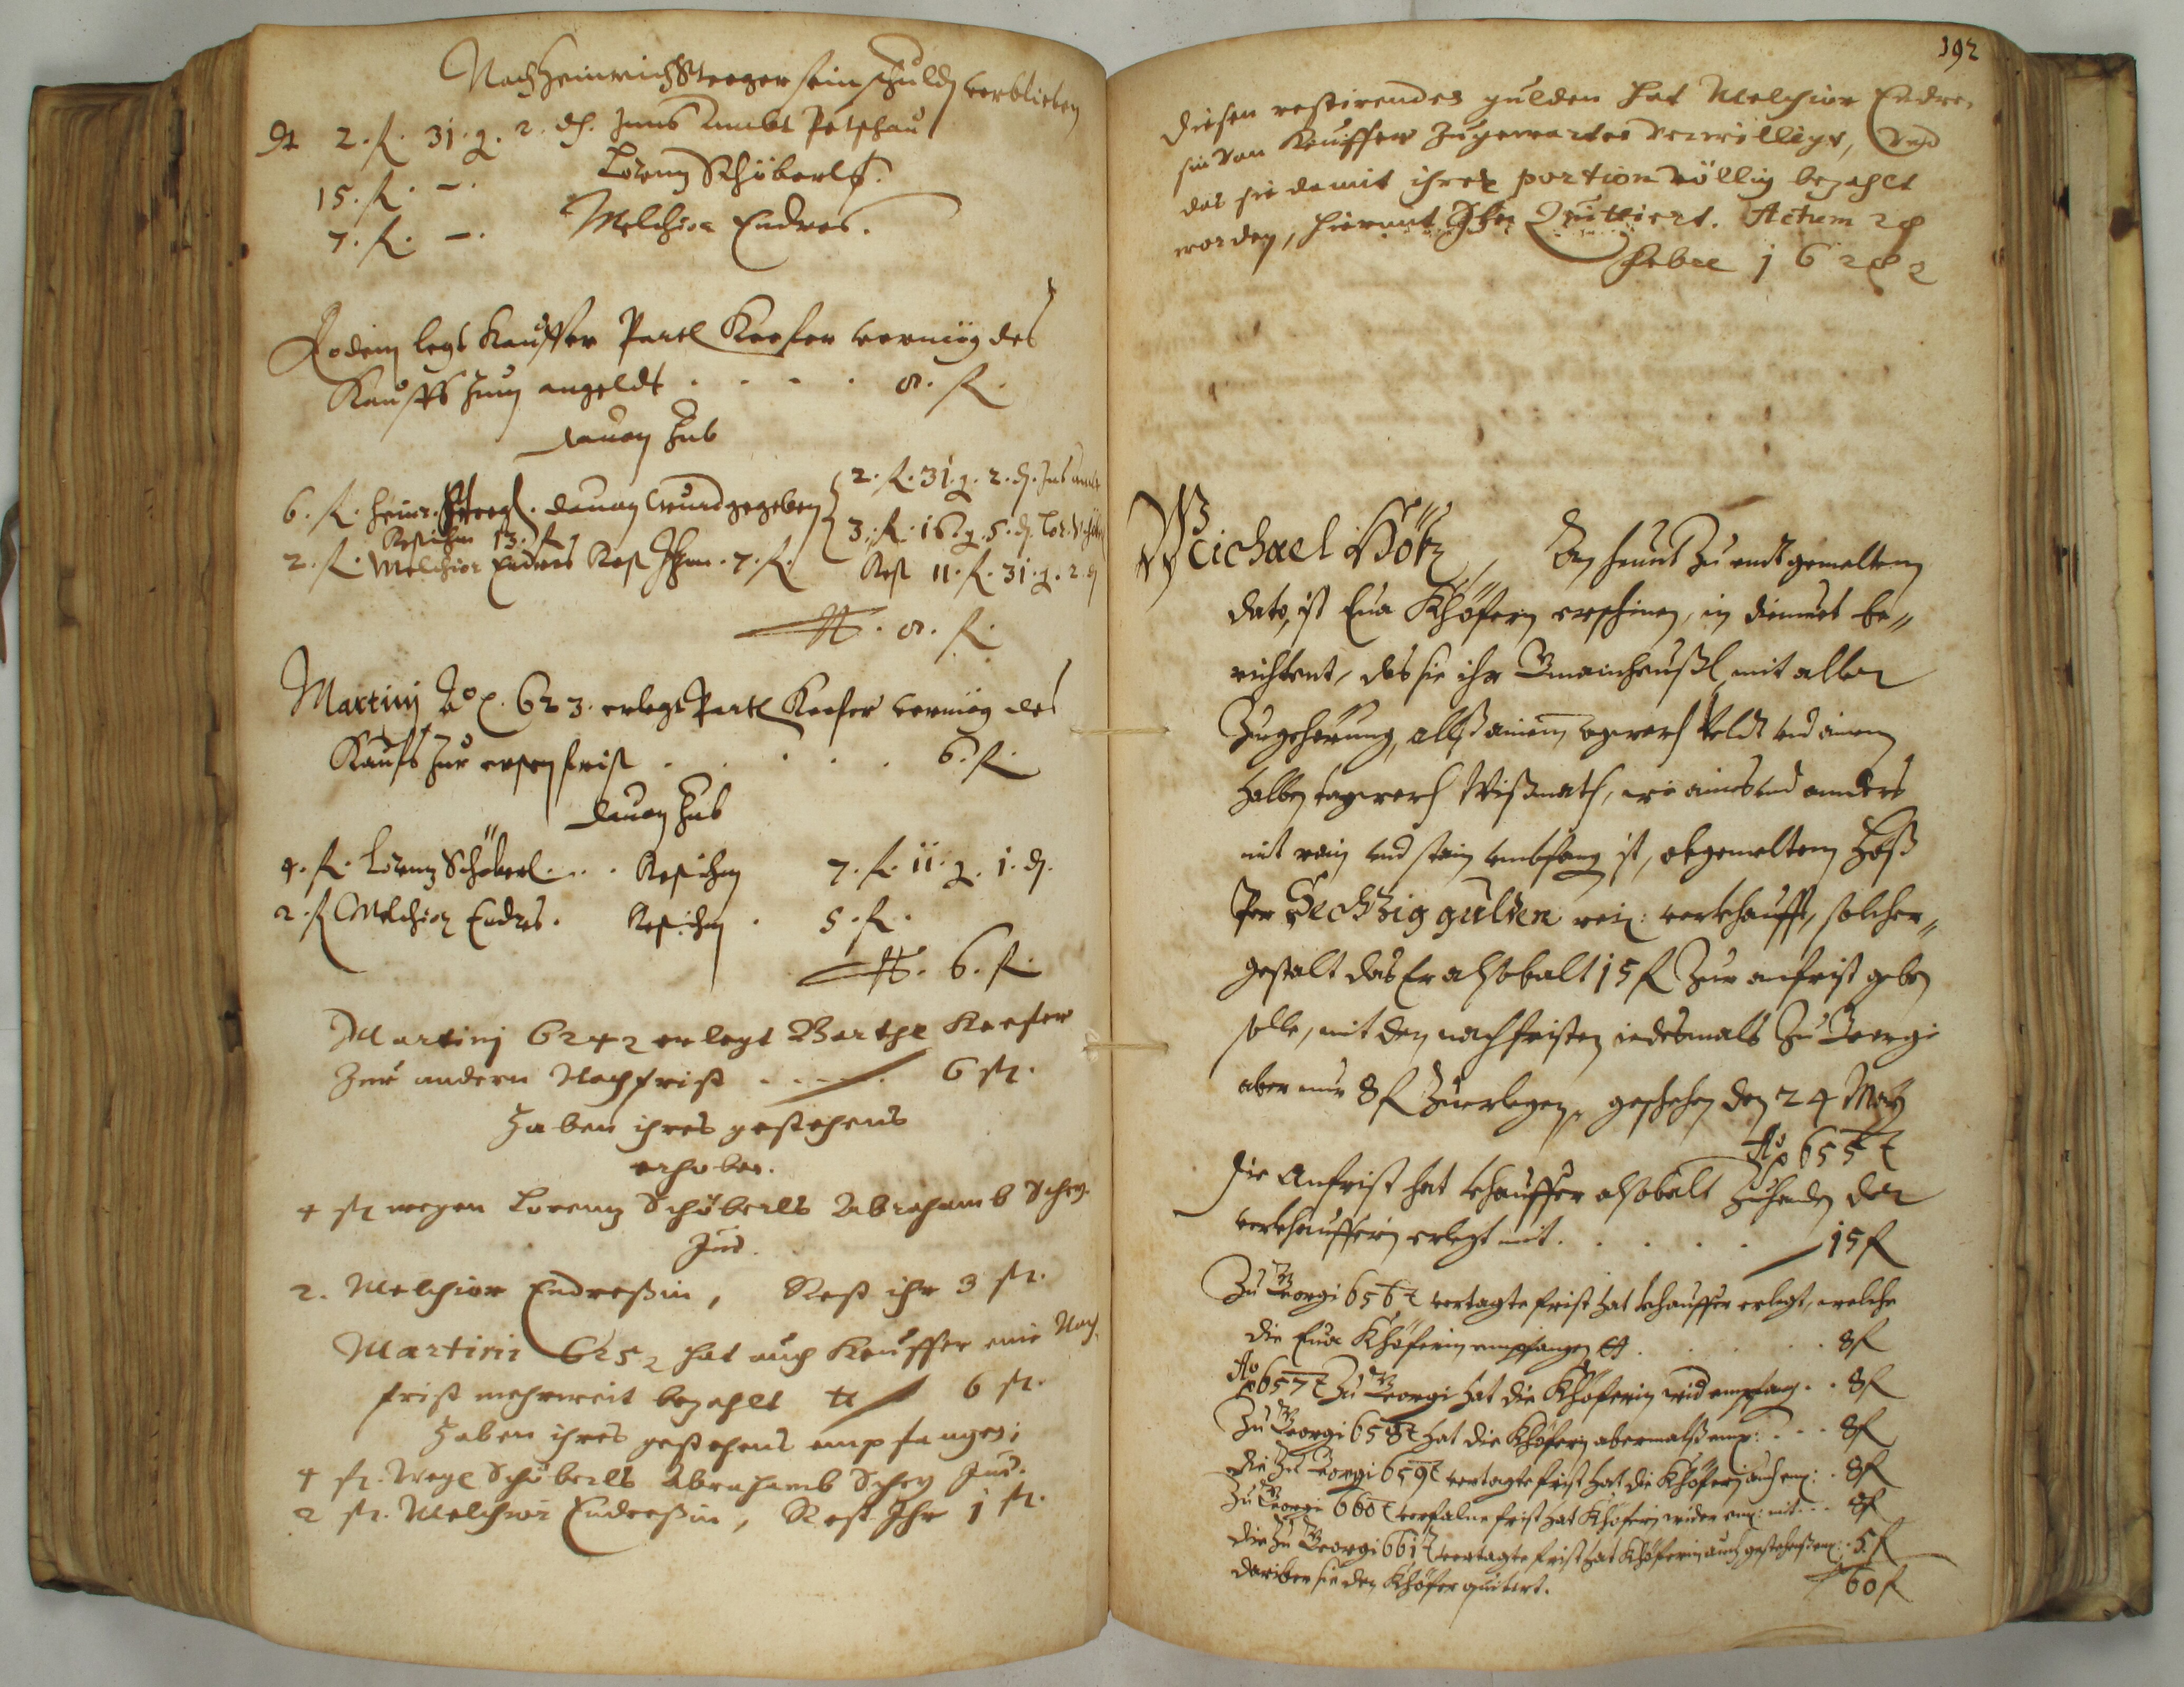 Nach Heinrich Steeger sein schuldig verblieben
2. fl. 31. g. 2. d. Ambt Petschau
15. fl. –. Lorenz Schöberl
7. fl. –. Melchior Endres.
Eodem legt Kauffer Partl Keefer vermög des
Kauffs zum angeldt . . . . 8. fl.
dauon hub
6. fl. Heinr. Steegl. dauon geben 2. fl. 31. g. 2. d. Ins ambt
Rest ihm 13. fl. 3. fl. 16. g. 5. d. Lor. Schöberl
2. fl. Melchior Endres Rest Ihm . 7. fl. Rest 11. fl. 31. g. 2. d
8. fl.
Martinj Ao. 623. erlegt Partl Keefer vermög des
Kauffs zur ersten frist . . . . . 6. fl.
dauon hub
4. fl. Lorenz Schöberl . . . Rest ihm 7. fl. 11. g. 1. d.
2. fl Melchior Endres . Rest ihm . 5. fl.
6. fl.
Martinj 624 erlegt Barthl Keefer
Zur andern Nachfrist . . . . 6 fl.
Haben ihres gestehens
erhoben.
4 fl wegen Lorenz Schöberls Abrahamb Schey
Jud.
2. Melchior Endressin, Rest ihr 3 fl.
Martini 625 hat auch Kauffer eine Nach
frist mehrweit bezahlt 6 fl.
Haben ihres gestehens empfangen:
4 fl. Wege Schöberls Abrahamb Schey Jud.
2 fl. Melchior Endressin, Rest Ihr 1 fl.
192
Diesen restirenden gulden hat Melchior Endre,
sin von Kauffer zugewarten verwilligt, Vnd
das sie damit ihrer portion völlig bezahlt
worden, hiermit Ihn Quittiert. Actum 28
Febr 1628
Michael Götz, An heunt zu endt gemeltem
dato, ist Eua Khöferin erschinen, in diemuet be„
richtent, das sie ihr Gmainheußl mit aller
Zugehörung, alß ainem tagwerch Veldt vnd ainem
halben tagwerch Wißmath, wie aines vnd anders
mit rain vnd stain vmbfang ist, obgemeltem Götz
per Sechtzig gulden rein: verkhaufft, solcher„
gestalt das Er alsobalt 15 fl Zur anfrist geben
solle, mit den nachfristen iedesmals Zu Georgi
aber nur 8 fl Zuerlegen, geschehen den 24 May
Ao 655
Die Anfrist hat khauffer alsobalt Zuhanden der
verkhaufferin erlegt mit . . . . . 15 fl
Zu Georgi 656 vertagte frist hat khauffer erlegt, welche
die Eua Khöferin empfangen . . . . . 8 fl
Ao 657 Zu Georgi hat die Khöferin wid empfang . . 8 fl
Zu Georgi 658 hat die Khöferin abermalß emp: . . . 8 fl
die Zu Georgi 659 vertagte frist hat die Khöferin auch emp: . 8 fl
Zu Georgi 660 verfalne frist hat Khöferin wider emp: mit . . . 8 fl
die Zu Georgi 661 vertagte frist hat Khöferin auch gestehens emp: . 5. fl
dariber sie den Khöfer quitirt. 60 fl